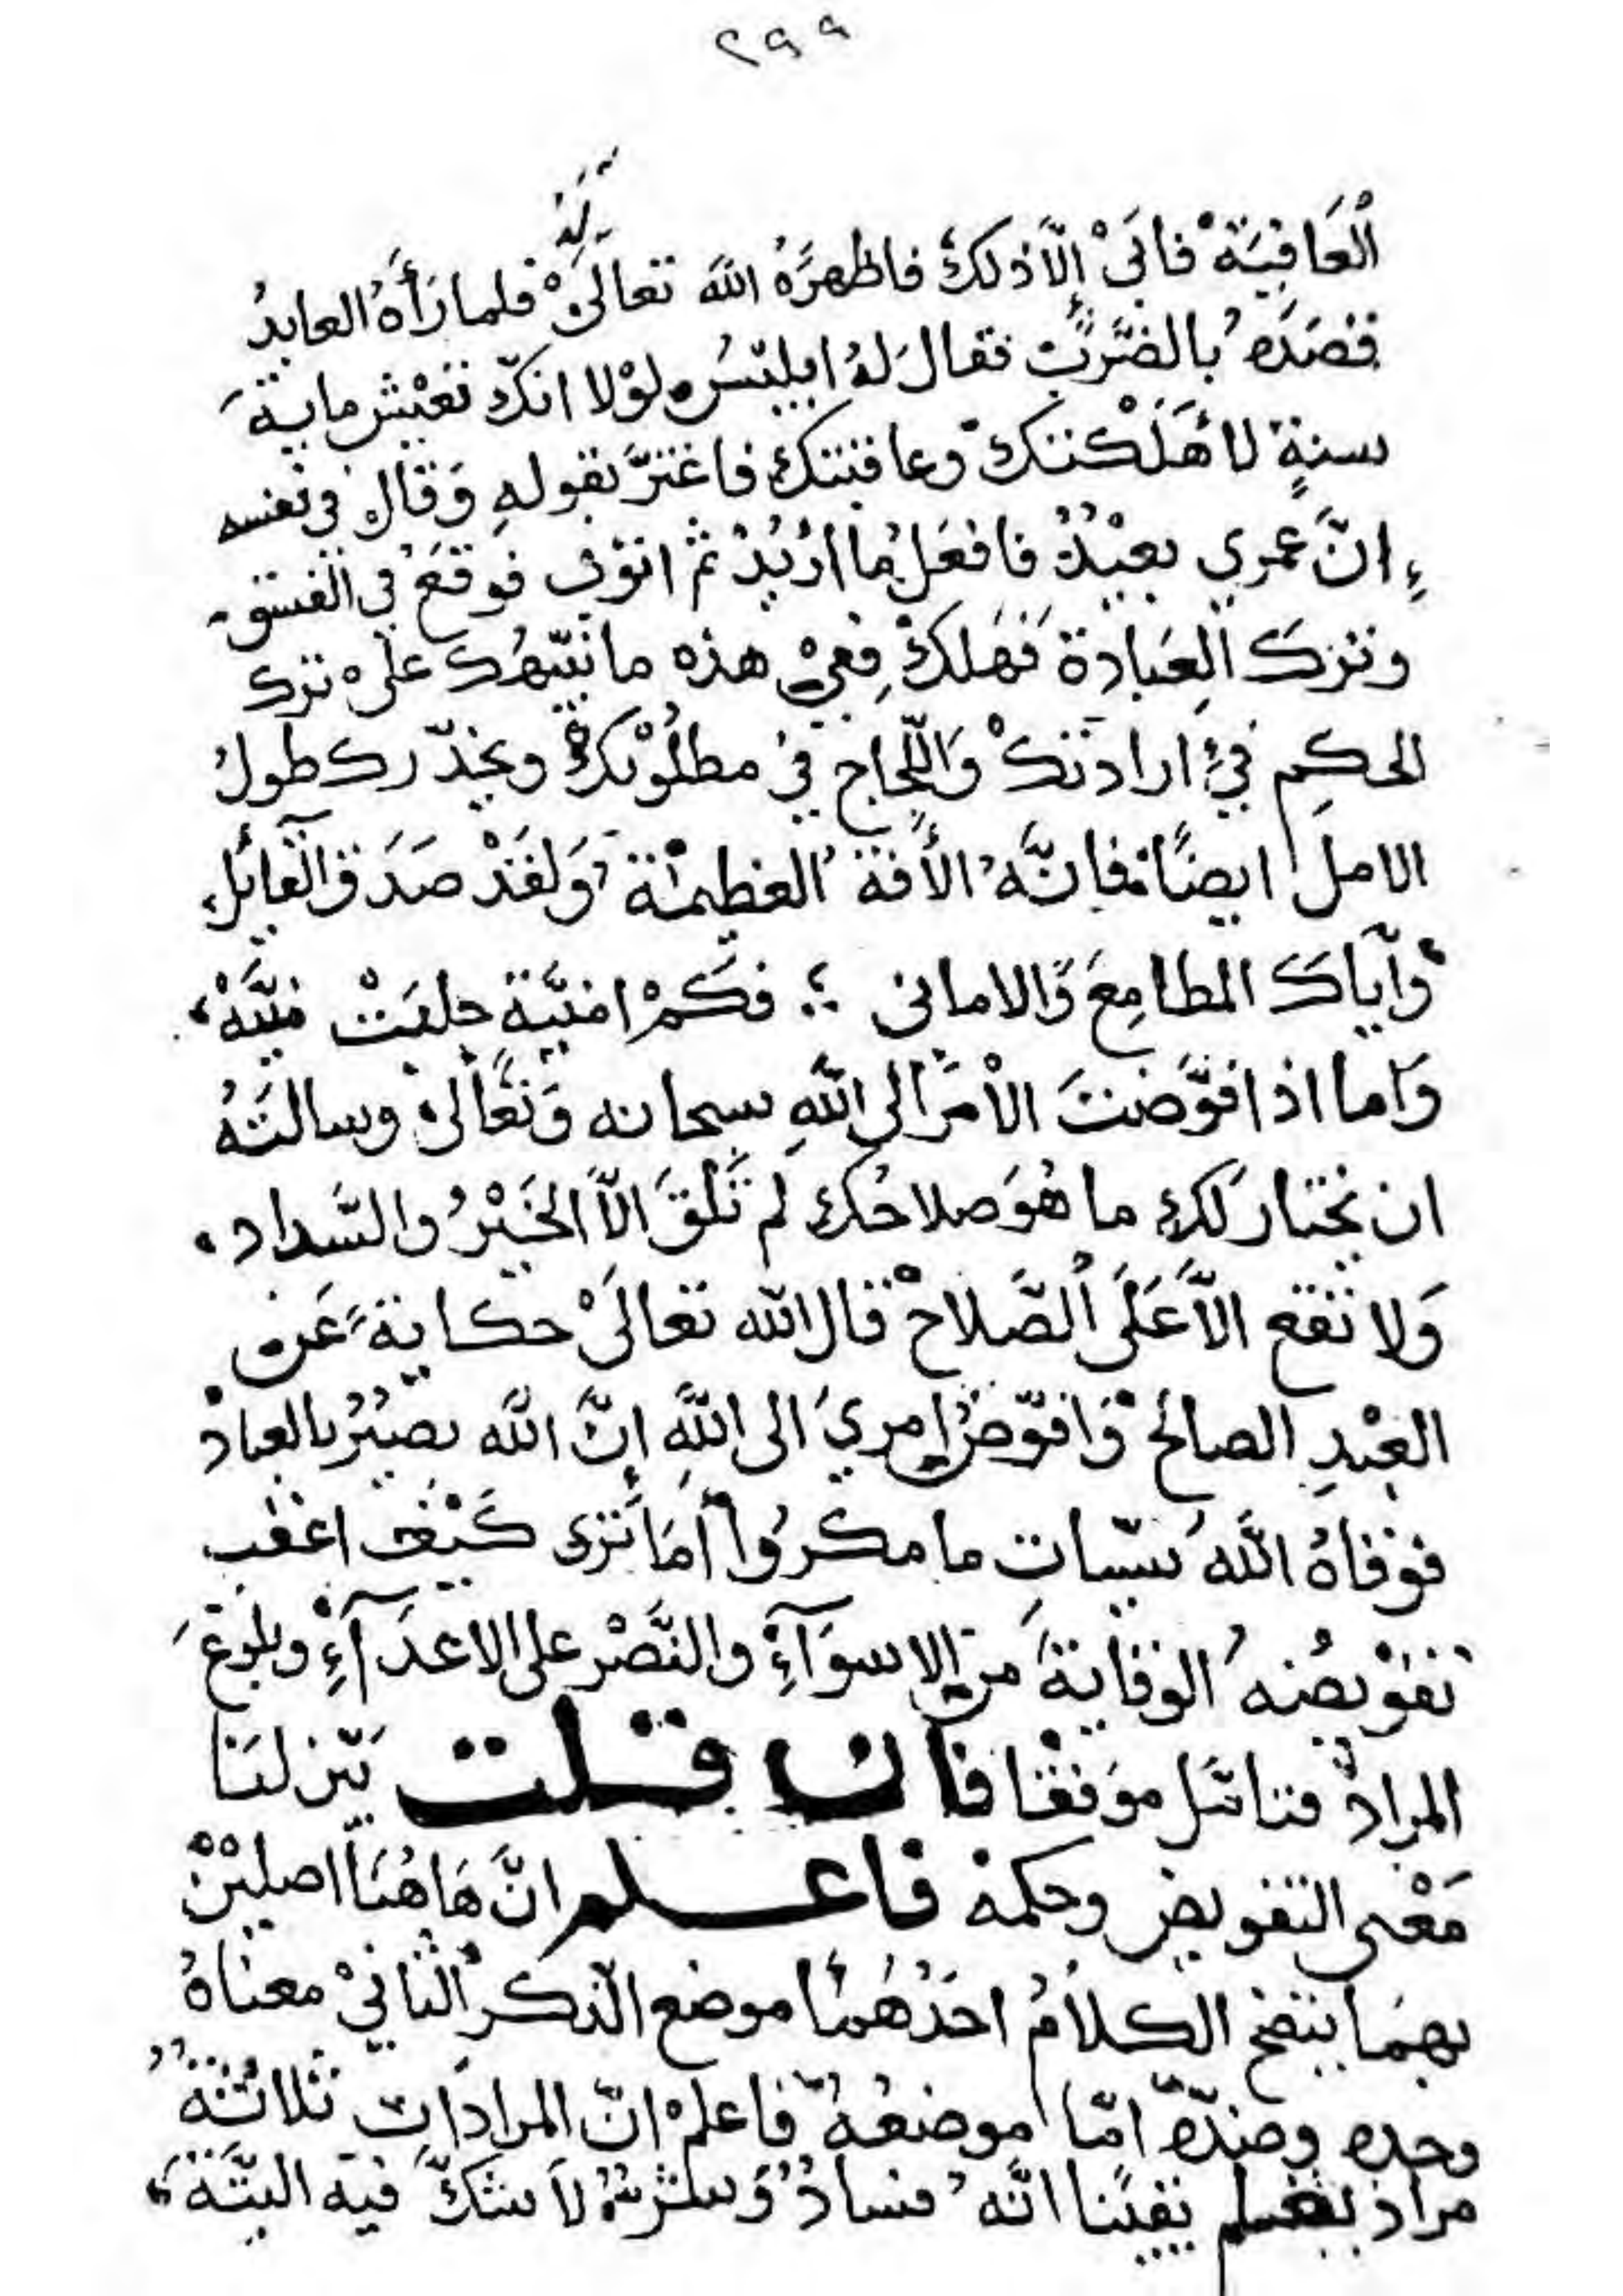 ٢٩٩
لَهُ
الْعَافِيَةْ فابَىْ إلّا ذلكَ فاظهرَهُ اللّه تعالَىْ فلما رَأَهُ العابدُ
قصَدَهُ بالضَّربِ فقال لهُ ابليسُ لوْلا انكّ تعيْش مايةَ
سنةٍ لأهلَكْتكَ وعاقبتك فاغترَّ بقولهِ وَقال في نفسه
انَّ عمري بعيْدُ فافعلُ ما اُرْيُدُ ثم اتوبُ فوقعَ في الفسق
وترَكَ العِبادة فهَلكْ ففيْ هذه ما ينبّهُك علىْ ترك
الحكمِ فيْ ارادتكْ وَاللّجاج فيْ مطلُوْبكْ ويحذّرك طولُ
الامل ايضًا فإنَّهُ الأفةُ العظيمْة وَلقَدْ صَدَق القآئل
وآيّاكَ المطامِعَ وَالاماني ؞ فكَمْ امنيَّة جلبَتْ منيَّهْ
وَاما اذا فوَّضتَ الأمرَ الى اللّهِ سبحانه وَتعَالىْ وسالتَهُ
ان يختار لكَ ما هُوَ صلاحُك لم تَلْقَ الّا الخَيْرُ والسَّداد ،
وَلا تقع الّا عَلَى الصَّلاحْ قال اللّه تعالىْ حكايةً عَن
العبْدِ الصالحْ وَافوّضُ امريَ الى اللّهِ إنَّ اللّه بصيْرُ بالعبادْ
فوقاهُ اللّهُ سيّياتِ ما مكرُوا أمَا تَرى كَيْفَ اعقب
تفوْيضُهُ الوقايةَ من الاسوَآءِ والنَّصْر على الاعدَآءِ وبلوغَ
المراد فتامّل موَفقًا فان قلت بيّن لنَا
مَعْنى التفويض وحكمهُ فاعلم انَّ هَاهُنَا اصليْنْ
بهمَا يتضح الكلامُ احَدُهُمَا موضع الذّكر الثّانيْ معناهُ
وحده وضدّه امّا موضعهُ فاعلمْ انّ المرادَات ثلاثُةُ
مرادُ يقينًا انَّهُ فسادُ وَشرُّ لا شكَّ فيه البتَّةَ،